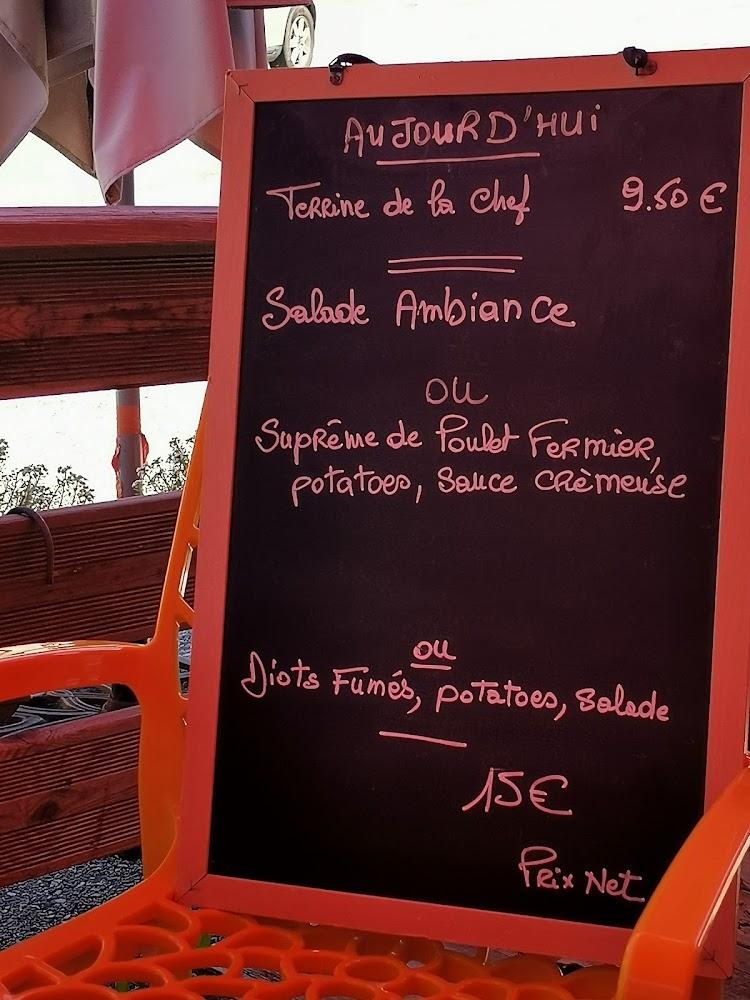 AUJOURD'HUi
Terrine de la Chef 9.50 €
Salade Ambiance
OU
Suprême de Poulet Fermier,
potatoes, Sauce Crèmeuse
ou
Diots Fumés, potatoes, Salade
15€
Prix Net